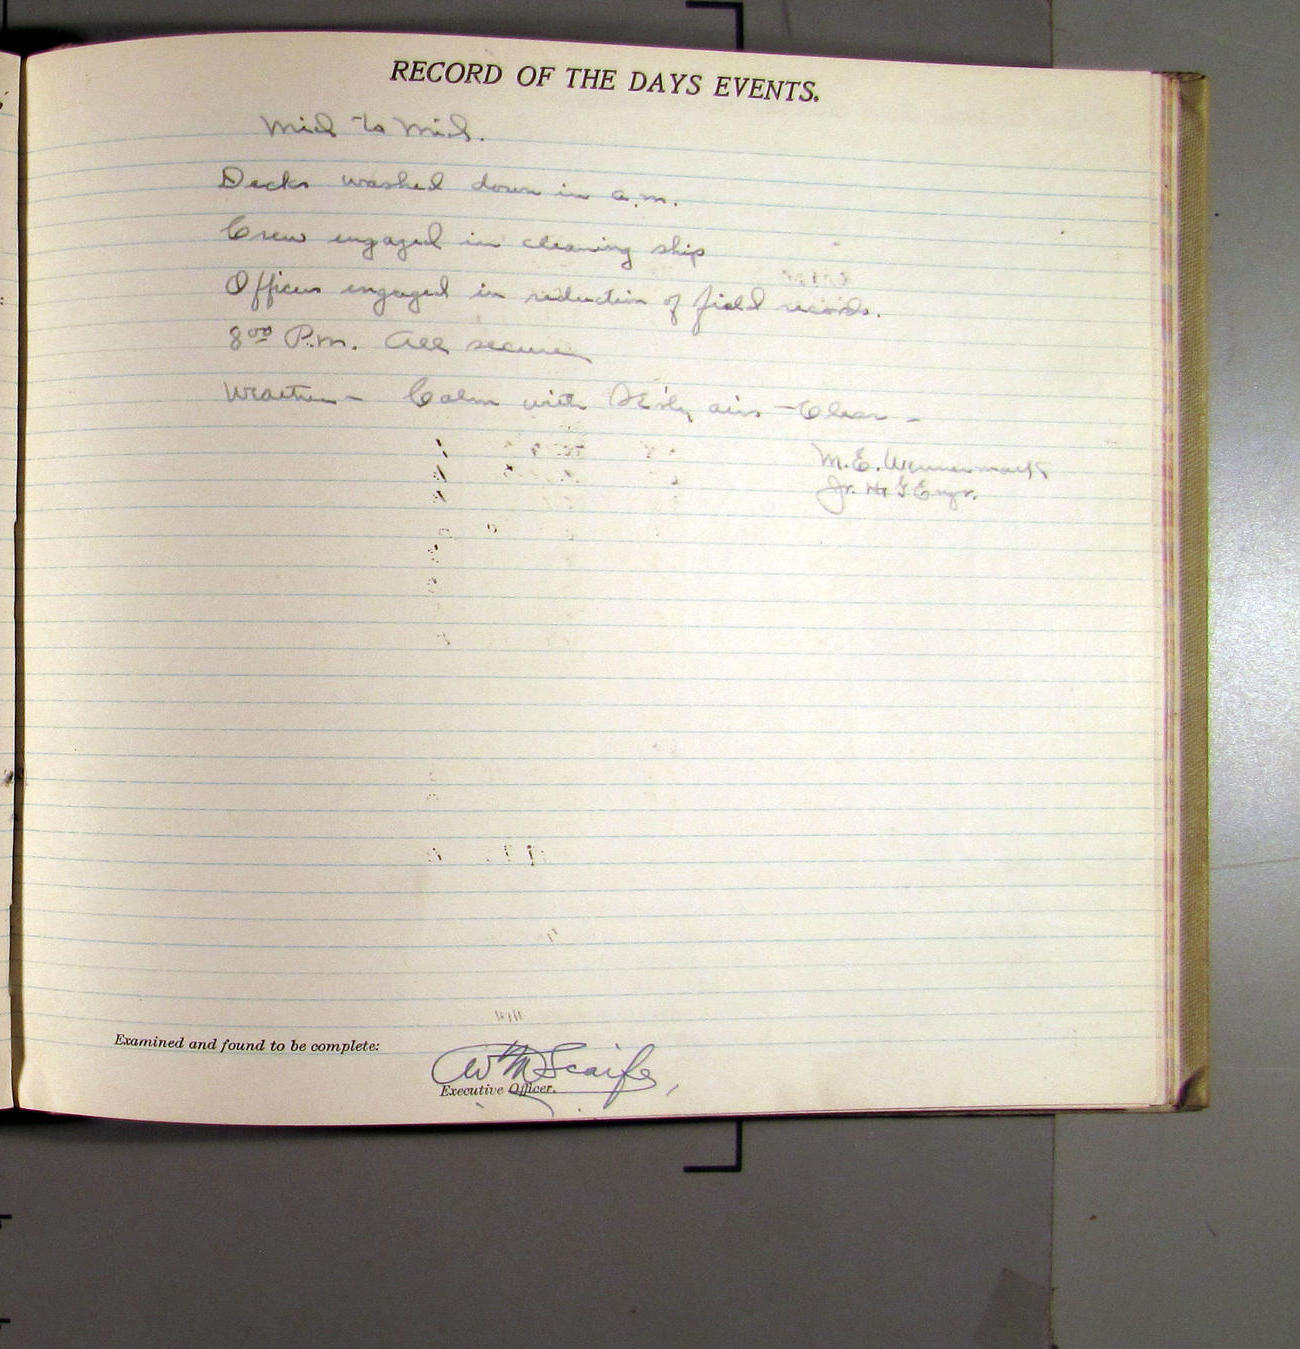 RECORD OF THE DAYS EVENTS.
Mid to Mid.
Decks washed down in a.m.
Crew engaged in cleaning ship
Officers engaged in reduction of field records.
8⁰⁰ P.m. All secure
Weather - Calm with SE'ly airs - Clear -
M. E. Wennermark
Jr. H & G Engr.
Examined and found to be complete:
W M Scaife,
Executive Officer.